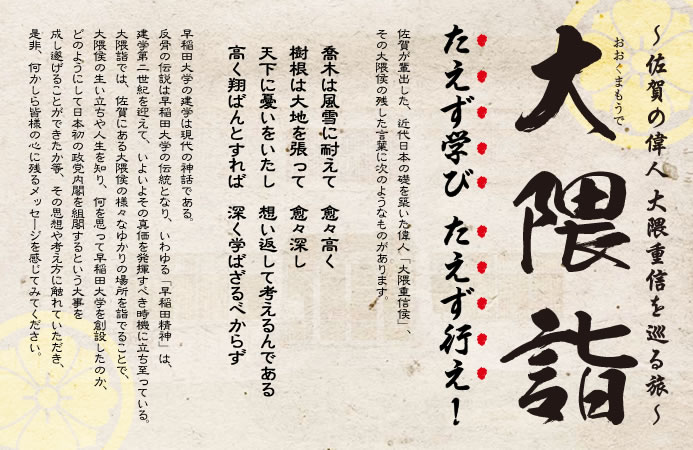 ～佐賀の偉人 大隈重信を巡る旅～
おおくまもうで
大隈詣
たえず学び たえず行え！
佐賀が輩出した、近代日本の礎を築いた偉人「大隈重信侯」、
その大隈侯の残した言葉に次のようなものがあります。
喬木は風雪に耐えて 愈々高く
樹根は大地を張って 愈々深し
天下に憂いをいたし 想い返して考えるんである
高く翔ばんとすれば 深く学ばざるべからず
早稲田大学の建学は現代の神話である。
反骨の伝説は早稲田大学の伝統となり、いわゆる「早稲田精神」は、
建学第二世紀を迎えて、いよいよその真価を発揮すべき時機に立ち至っている。
大隈詣では、佐賀にある大隈侯の様々なゆかりの場所を詣でることで、
大隈侯の生い立ちや人生を知り、何を思って早稲田大学を創設したのか、
どのようにして日本初の政党内閣を組閣するという大事を
成し遂げることができたか等、その思想や考え方に触れていただき、
是非、何かしら皆様の心に残るメッセージを感じてみてください。